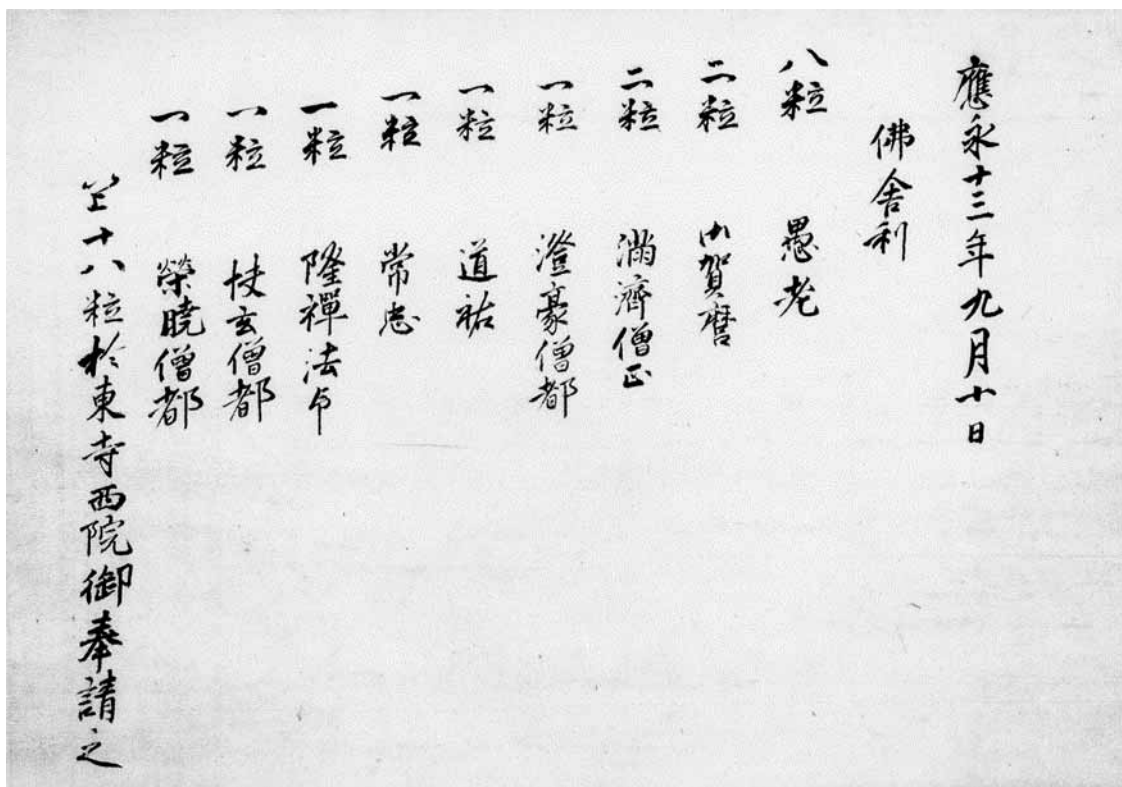 應永十三年九月十日
佛舍利
八粒 愚老
二粒 御賀麿
二粒 滿濟僧正
一粒 澄豪僧都
一粒 道祐
一粒 常忠
一粒 隆禪法印
一粒 快玄僧都
一粒 榮曉僧都
以上十八粒於東寺西院御奉請之